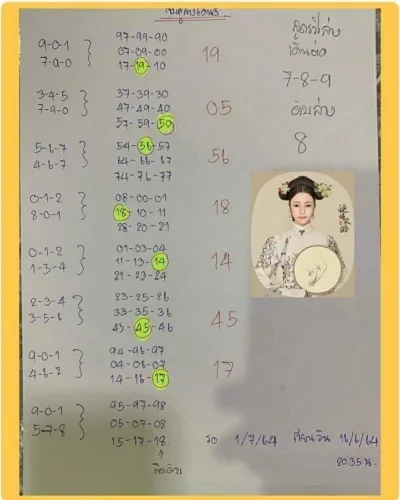 สูตรวิ่งล่าง
เดินต่อ
7-8-9
ดับล่าง
8
9-0-1
7-9-0
97-99-90
07-09-00
17-19-10
19
3-4-5
7-9-0
37-39-30
47-49-40
57-59-50
05
5-6-7
4-6-7
54-56-57
64-66-67
74-76-77
56
0-1-2
8-0-1
08-00-01
18-10-11
28-20-21
18
0-1-2
1-3-4
01-03-04
11-13-14
21-23-24
14
2-3-4
3-5-6
23-25-26
33-35-36
43-45-46
45
9-0-1
4-6-7
94-96-97
04-06-07
14-16-17
17
9-0-1
5-7-8
95-97-98
05-07-08
15-17-18
รอ 1/7/64 เขียนวัน 16/6/64
20.35 น.